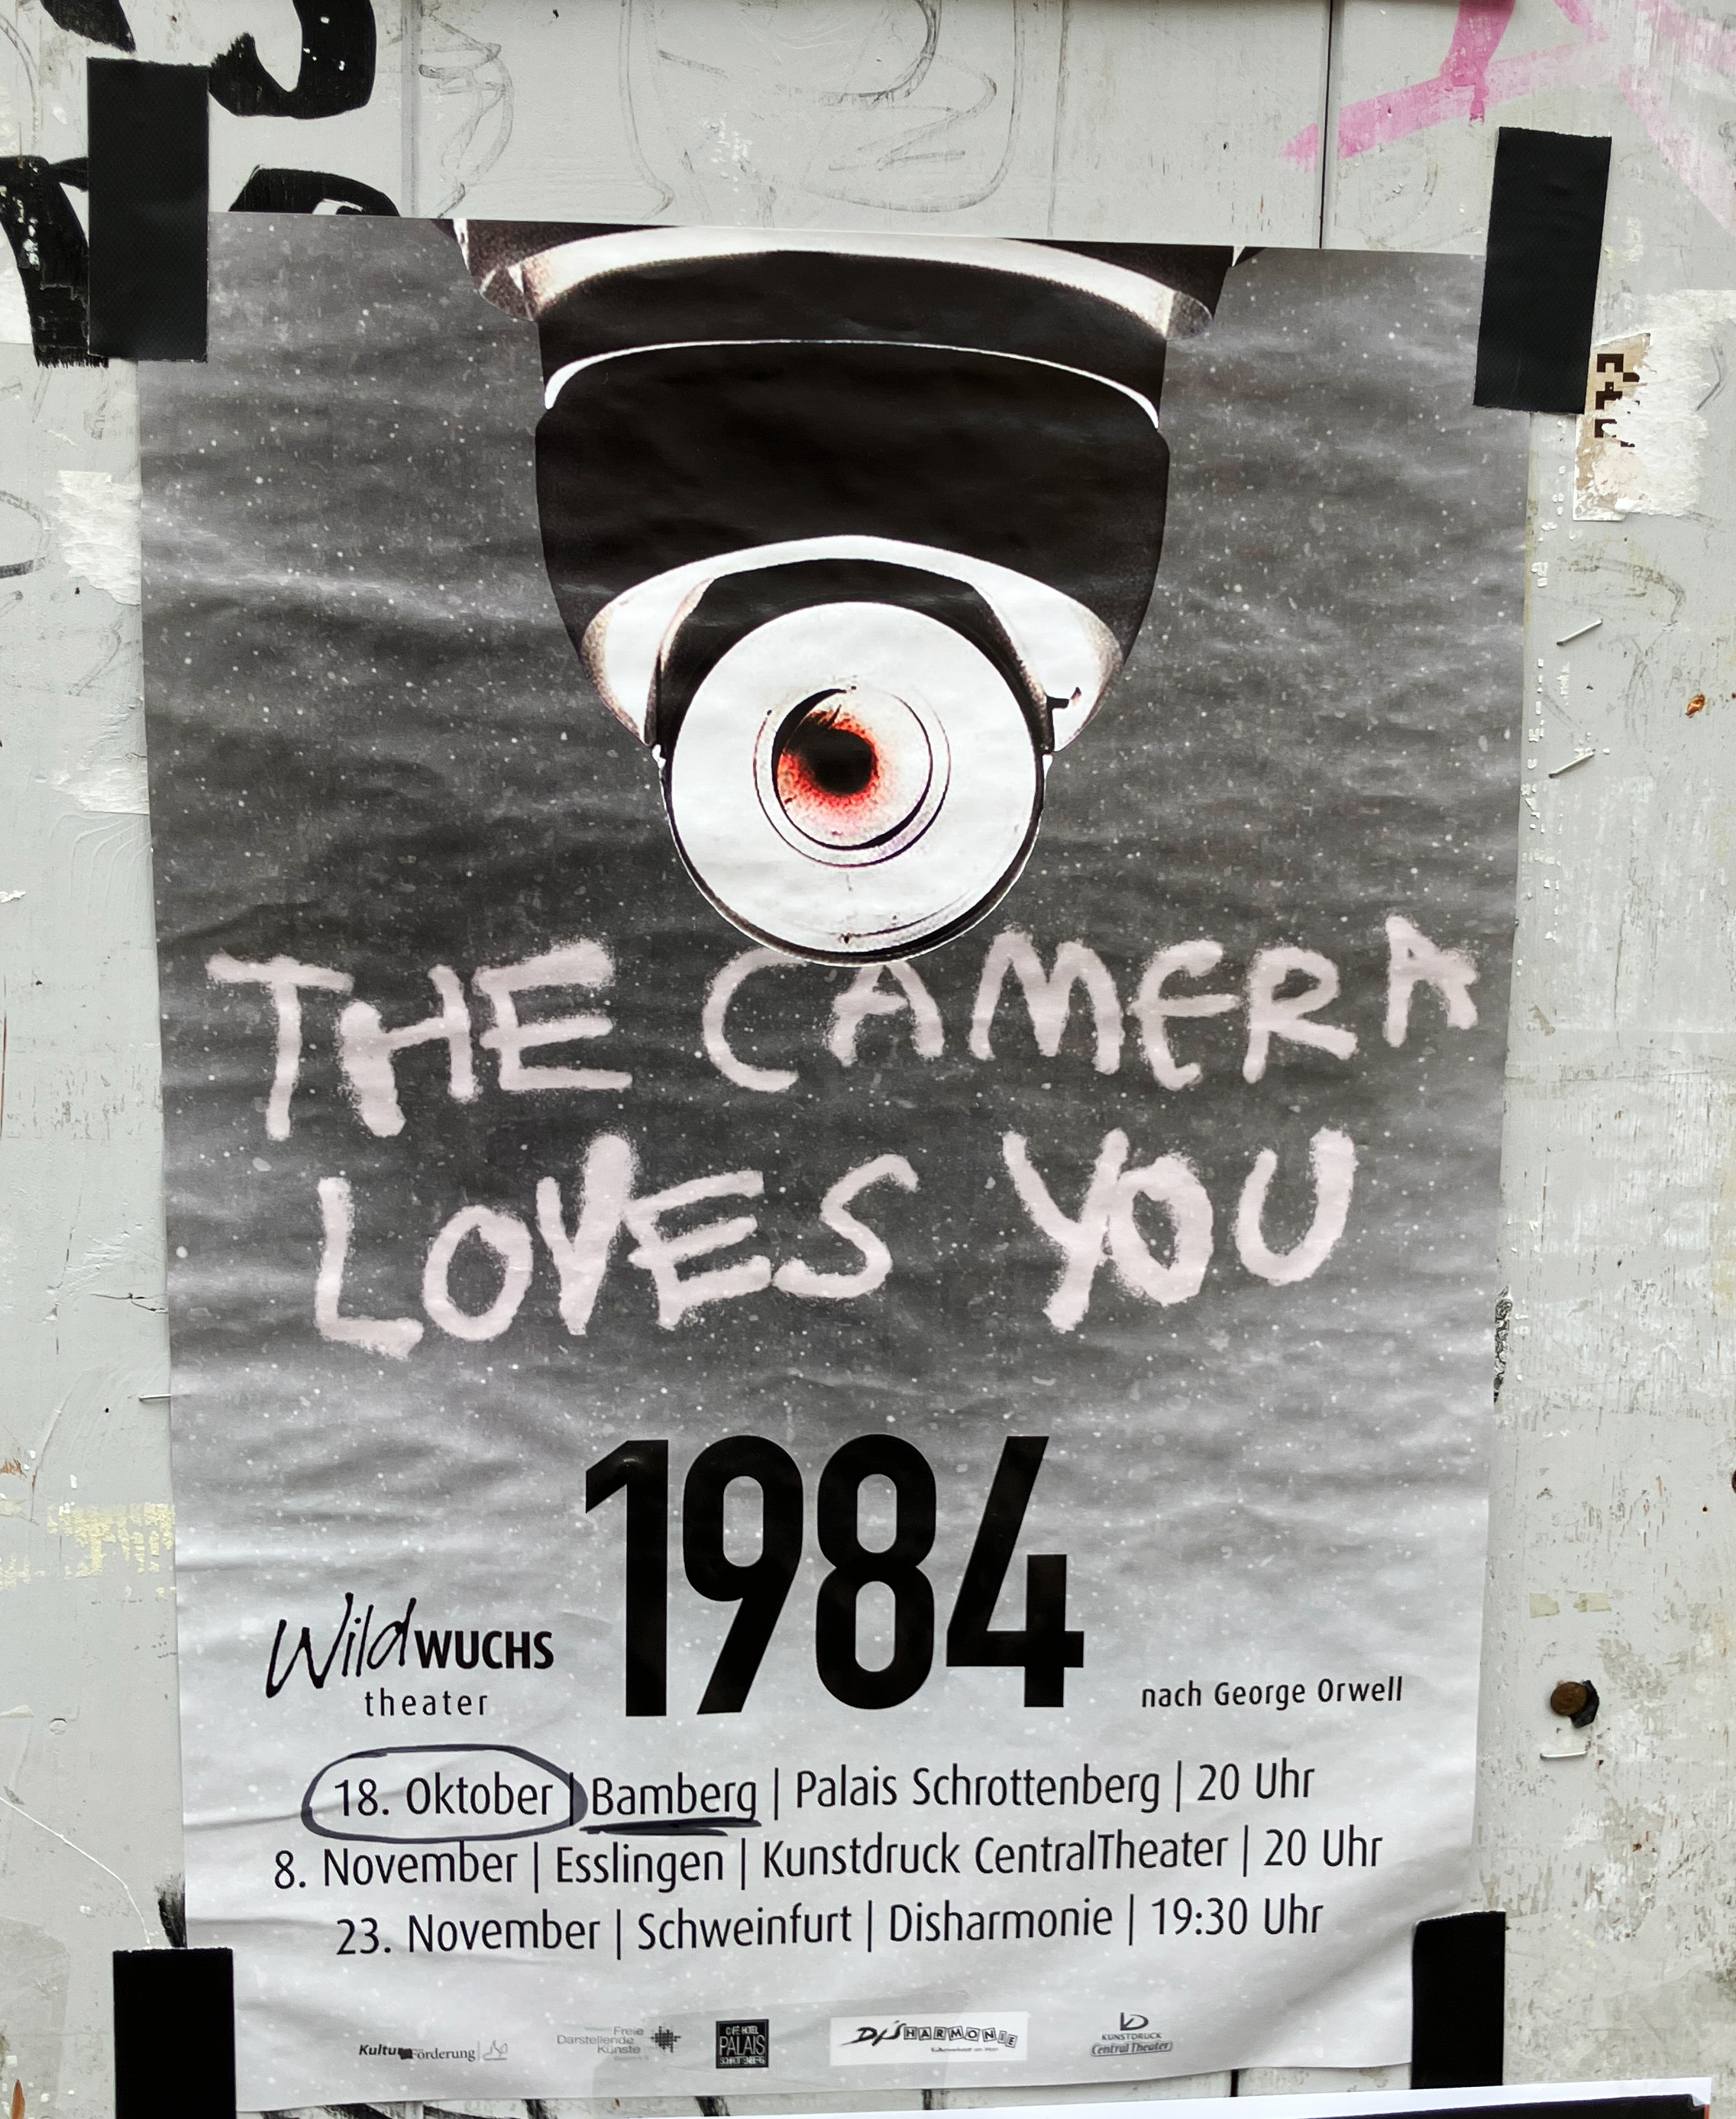 THE CAMERA
LOVES YOU
1984
Wildwuchs
theater
nach George Orwell
18. Oktober | Bamberg | Palais Schrottenberg | 20 Uhr
8. November | Esslingen | Kunstdruck CentralTheater | 20 Uhr
23. November | Schweinfurt | Disharmonie | 19:30 Uhr
Freie
Darstellende
Künste
Kulturförderung
CAFÉ HOTEL
PALAIS
SCHROTTENBERG
DisHARMONIE
KUNSTDRUCK
Central Theater